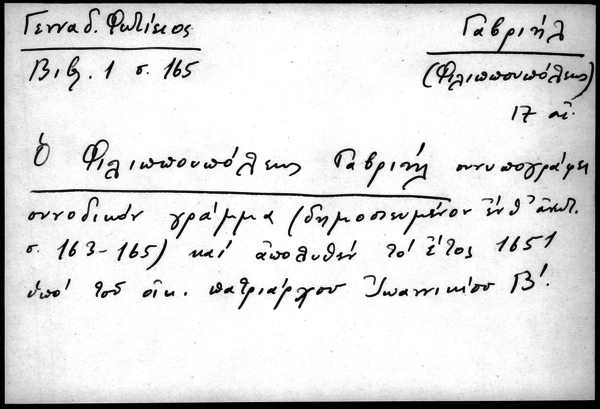 Γενναδ. Φωτίειος
Βιβλ. 1 σ. 165
Γαβριήλ
(Φιλιππουπόλεως)
17 αἰ.
Ὁ Φιλιππουπόλεως Γαβριήλ συνυπογράφει
συνοδικόν γράμμα (δημοσιευμένον ἐνθ' ἀνωτ.
σ. 163-165) καί ἀπολυθέν τό ἔτος 1651
ὑπό τοῦ οἰκ. πατριάρχου Ἰωαννικίου Β'.